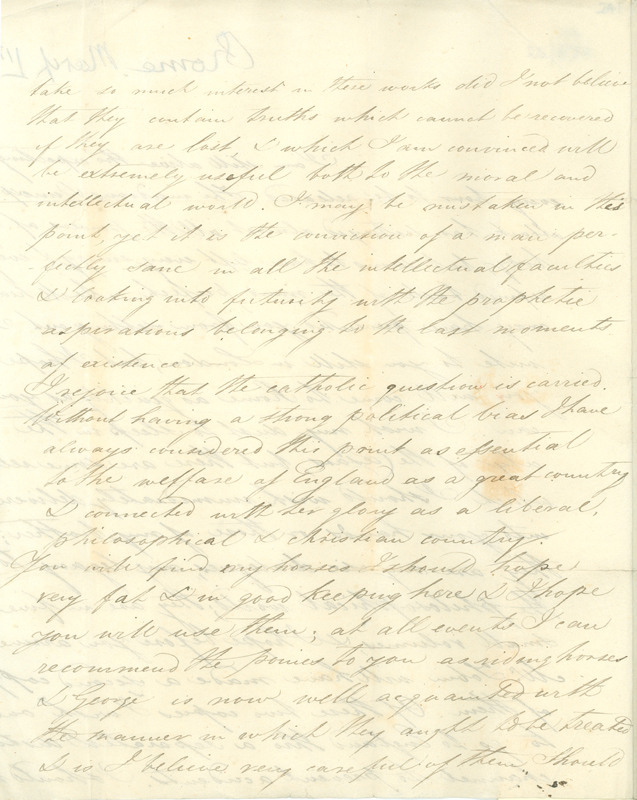 take so much interest in these works did I not believe
that they contain truths which cannot be recovered
if they are lost & which I am convinced will
be extremely useful both to the moral and
intellectual world. I may be mistaken in this
point, yet it is the conviction of a man per-
-fectly sane in all the intellectual faculties
& looking into futurity with the prophetic
aspirations belonging to the last moments
of existence.
I rejoice that the catholic question is carried.
Without having a strong political bias I have
always considered this point as essential
to the welfare of England as a great country
& connected with her glory as a liberal,
philosophical & Christian country.
You will find my horses I should hope
very fat & in good keeping here & I hope
you will use them; at all events I can
recommend the ponies to you as riding horses
& George is now well acquainted with
the manner in which they aught to be treated
& is I believe very careful of them. Should